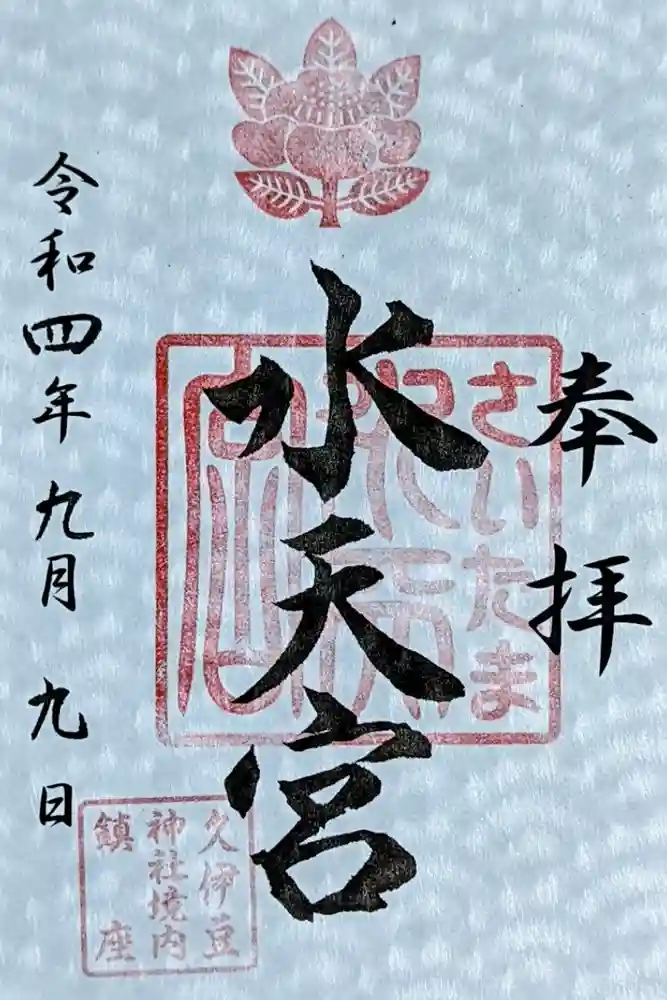 奉拝
水天宮
さいたま
令和四年九月九日
久伊豆
神社境内
鎮座